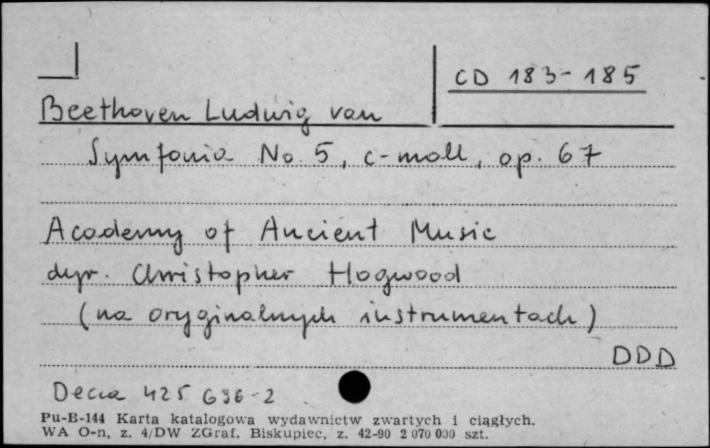 CD 183-185
Beethoven Ludwig van
Symfonia No. 5, c-moll, op. 67
Academy of Ancient Music
dyr. Christopher Hogwood
(na oryginalnych instrumentach)
DDD
Decca 425 696-2
Pu-B-144 Karta katalogowa wydawnictw zwartych i ciągłych.
WA O-n, z. 4/DW ZGraf. Biskupiec, z. 42-90 2 070 000 szt.